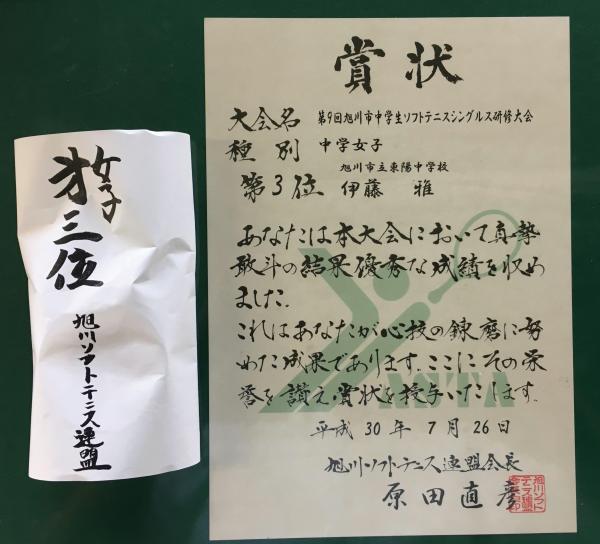 女子
第三位
旭川ソフトテニス連盟
賞状
大会名 第9回旭川市中学生ソフトテニスシングルス研修大会
種別 中学女子
旭川市立東陽中学校
第3位 伊藤 雅
あなたは本大会において真摯
敢斗の結果優秀な成績を収め
ました.
これはあなたが心技の錬磨に努
めた成果であります.ここにその栄
誉を讃え賞状を授与いたします.
平成 30 年 7 月 26 日
旭川ソフトテニス連盟会長
原田直彦
旭川ソフト
テニス連盟
会長印